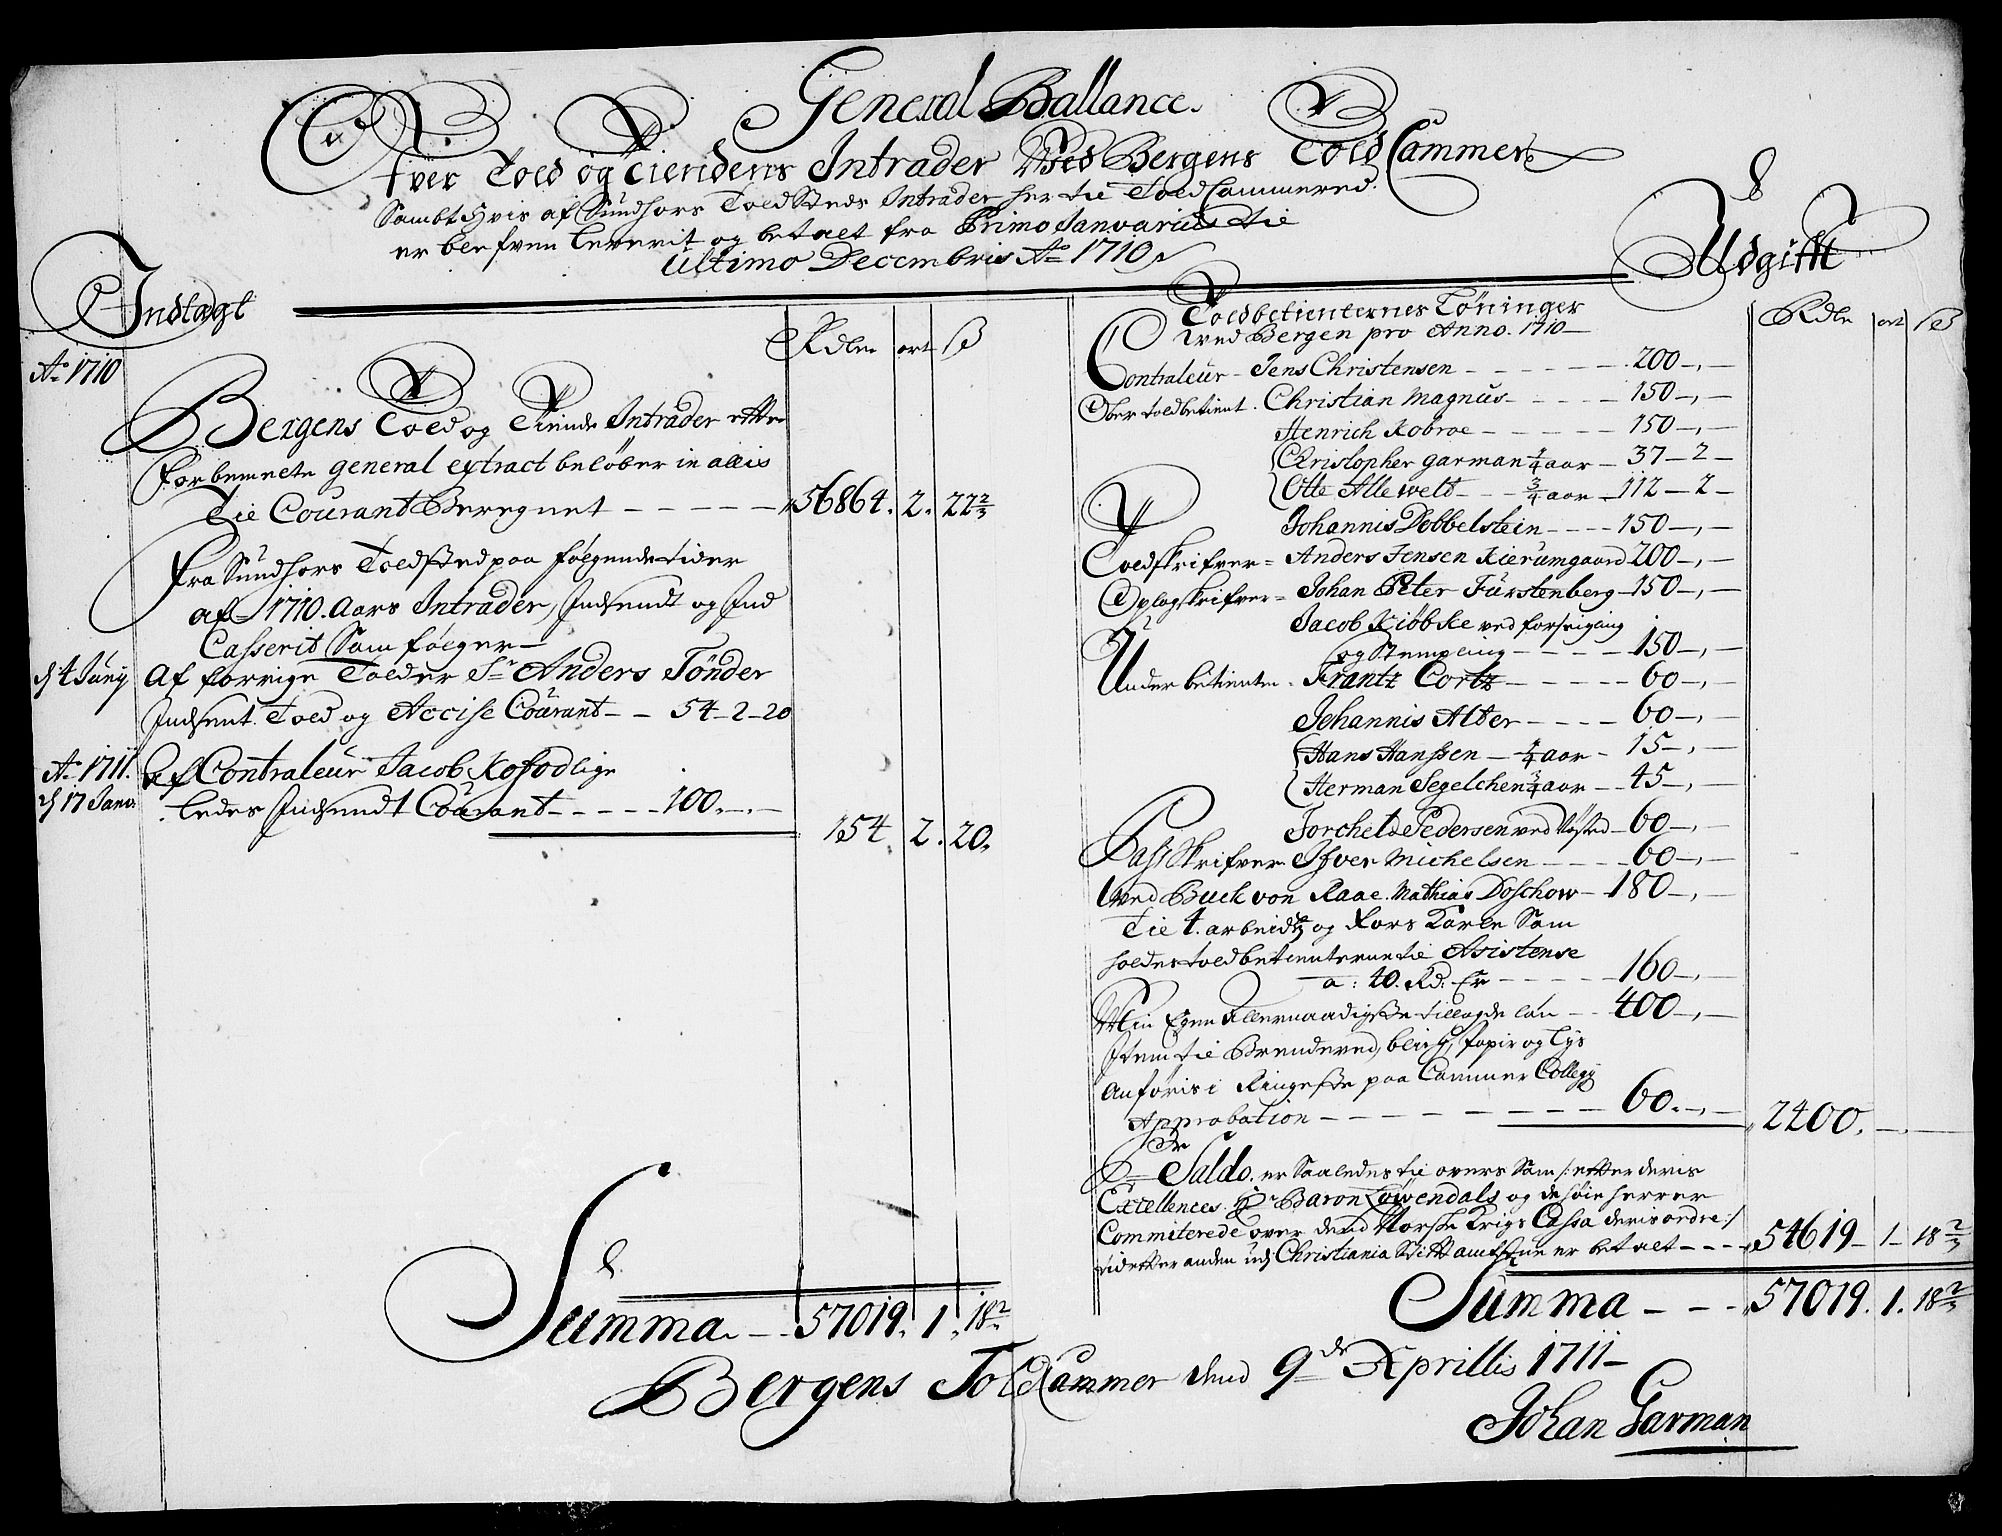 General Ballance.
Ofver Told og Tiendens Intrader Ved Bergens Told Cammer
Sambt hvis af Sundhors ToldSteds Intrader her til ToldCammered
er blefven leverit og betalt fra Primo Januarius til
Ultimo Decembris Ao 1710
Indtagt
Rdlr ort ß
Ao 1710
Bergens Told og Tiende Intrader effter
forbemelte general extract beløber in alles
Til Courant Beregnet - - - - - 56864. 2. 22 2/3
Fra Sundhors Toldsted paa følgende tider
af 1710. Aars Intrader, Indsendt og Ind
Casserit Som følger
d 4 Junij Af forrige Tolder Sr Anders Tönder
Indsent Told og Accise Courant - - 54-2-20
Ao 1711. Af Contraleur Jacob Kofod lige
d 17 Janv ledes Indsendt Courant - - - - 100.-.-
154. 2. 20.
Summa - - 57019. 1. 18 2/3
Udgifft
Rdlr ort ß
Toldbetienternes Löninger
ved Bergen pro Anno. 1710
Contraleur - Jens Christensen - - - - - - 200-,-
Ober toldbetient. Christian Magnus - - - - - 150-,-
Henrich Kobroe - - - - - 150-,-
Christopher Garman 1/4 aar - 37-2-
Otte Allewelt - - - 3/4 aar - 112-2-
Johannis Dobbelstein - - - - 150-,-
Toldskrifver = Anders Jensen Kierumgaard 200-,-
Oplagskrifver = Johan Peter Fürstenberg - 150-,-
Jacob Kiøbke ved forseigling
og Stempling - - - - - 150-,-
Under betiente - Frantz Cortz - - - - - 60-,-
Johannis Alter - - - - 60-,-
Hans Hanssen - 1/4 aar - 15-,-
Herman Segelchen 3/4 aar - - 45-,-
Torchel Pedersen ved Nøsted - 60-,-
Pass Skrifver Ifver Michelsen - - - - 60-,-
Ved Buck von Raae. Mathias Doschow - 180-,-
Til 4. arbeids og Rors Karle Som
holdes toldbetienterne til Asistense
a: 40. Rd: Er - - - - - 160-,-
Min Egen Allernaadigste tillagde løn - - 400-,-
Item til Brendeved, blech, papir og Lys
Anføris i Ringeste paa Cammer Collegij
Approbation - - - - - - - - - 60.-,- 2400.-.-
Pr Saldo. er Saaledes til overs Som /: effter deris
Excellences Hr Baron Löwendals og de høie herrer
Commiterede over dend Norske Krigs Cassa deris ordre :/
tid effter anden udj Christiania Stifft amstue er betalt - - - 54619-1-18 2/3
Summa - - - 57019. 1. 18 2/3
Bergens ToldCammer dend 9de Aprillis 1711
Johan Garman